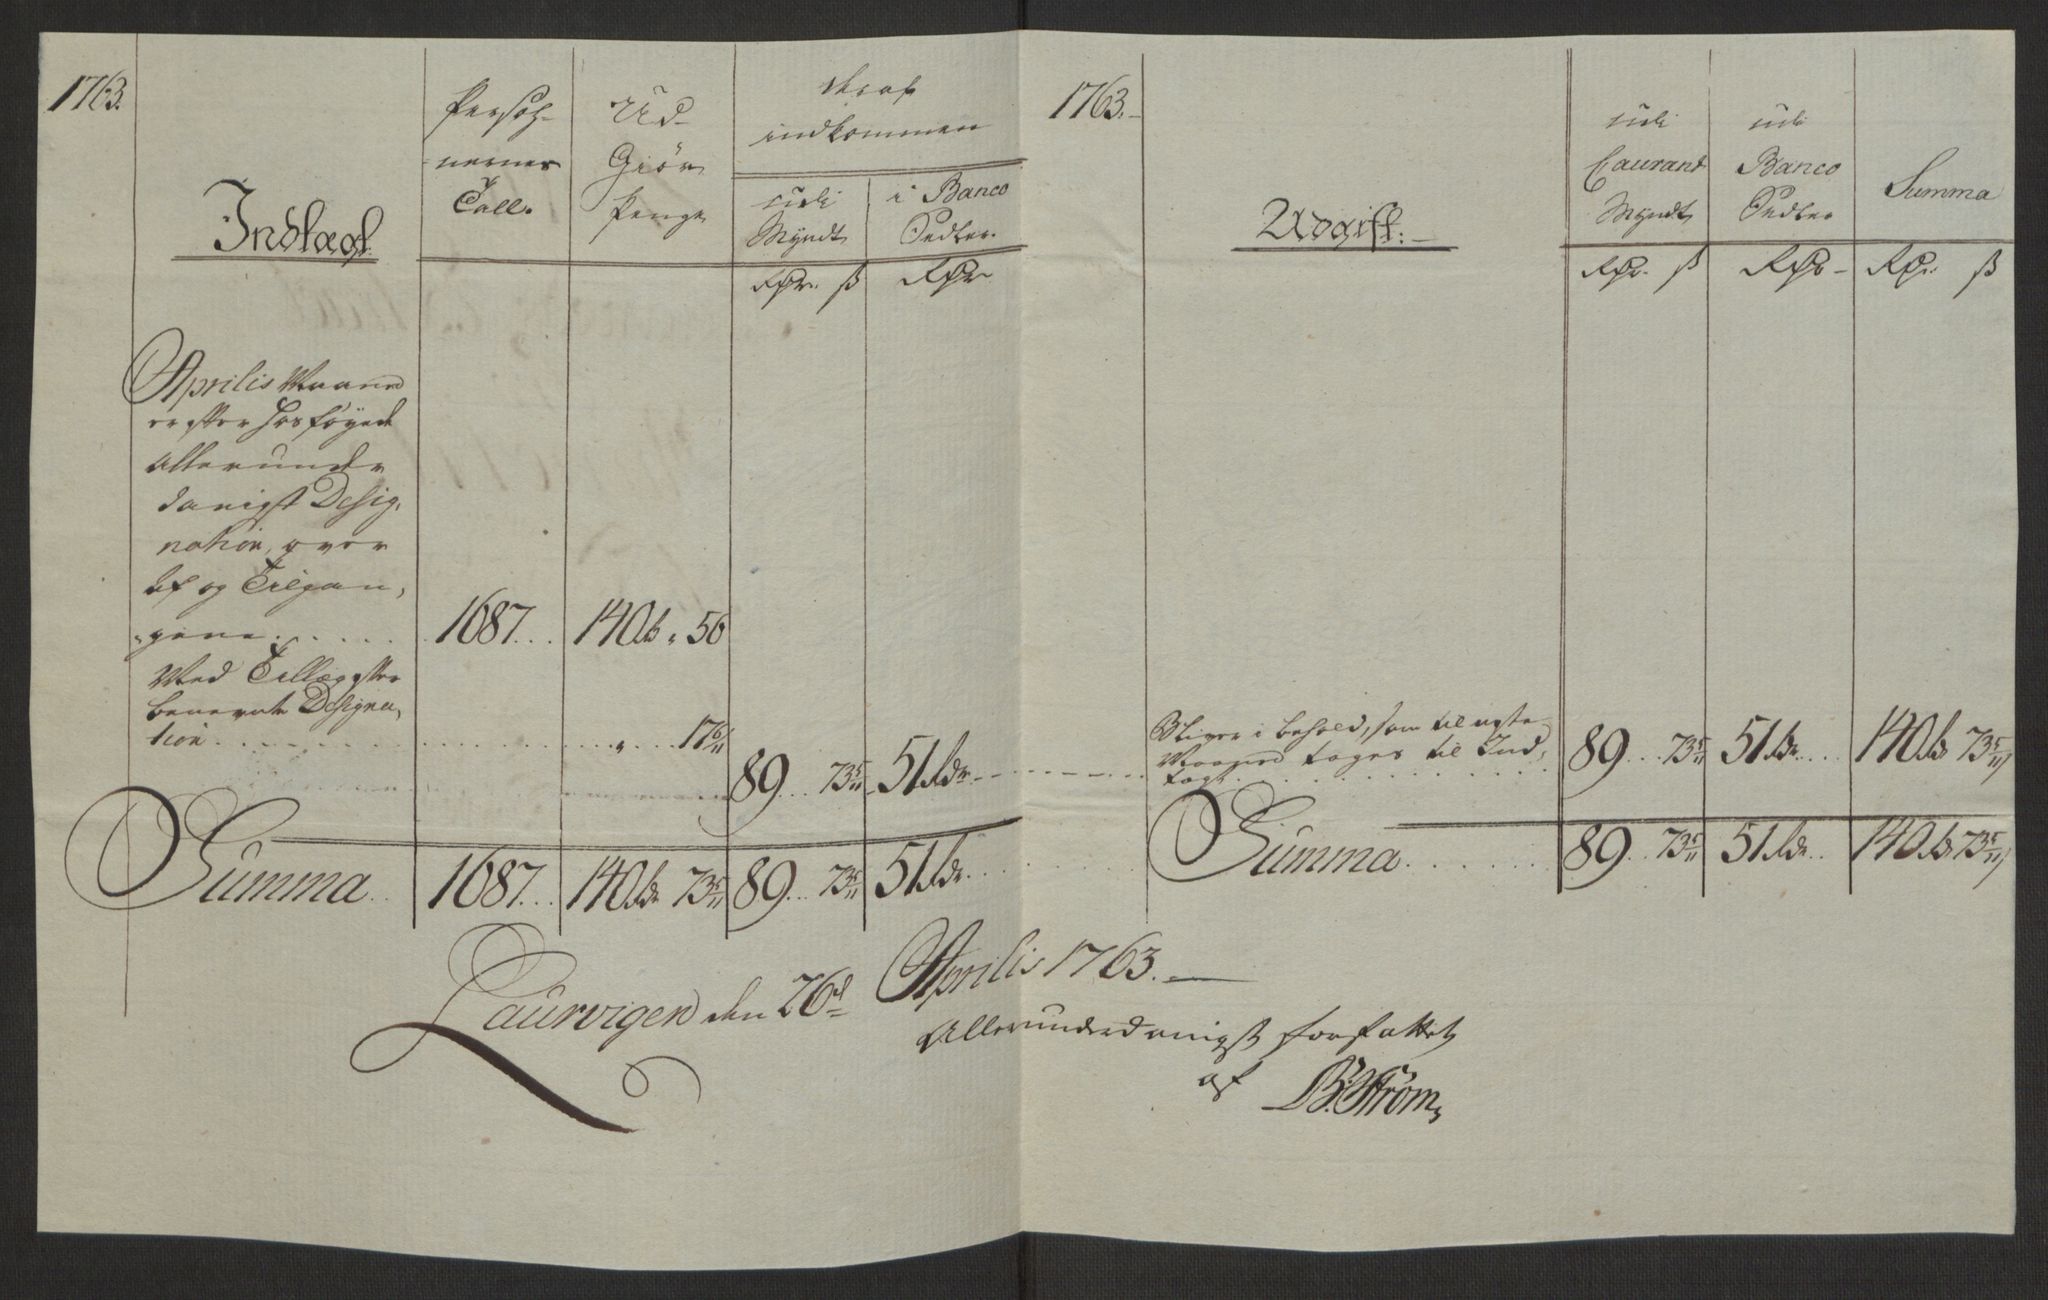 1763.
Indtægt.
Persoh-
nernes
Tall.
Ud-
Giør
Penge
hvoraf
indkommen
udi
Myndt
i Banco
Sedler.
Rdr. ß
Rdr.
Aprilis Maaned
efter hosføyede
allerunder
danigst Desig,
nation, over
Af og Tilgan,
gene . . . . . . 1687. . . 140 rdr. 56
Med Tillæg efter
benevnte Designa,
tion . . . . . . 17 6/11
89 . . 73 5/11 51 rdr
Summa . . 1687. . . 140 rdr 73 5/11 89 . . 73 5/11 51 rdr. . .
1763.
Udgift:
udi
Caurant
Myndt
udi
Banco
Sedler
Summa
Rdr. ß
Rdr
Rdr. ß
Bliver i behold, som til neste
Maaned tages til Ind,
tægt . . . . . . 89 . . . 73 5/11 51 rdr. . . . 140 rdr 73 5/11
Summa . . . . . . 89 . . 73 5/11 51 rdr. . . 140 rdr 73 5/11
Laurvigen den 26d Aprilis 1763.
Allerunderdanigst forfattet
af B: Strøm